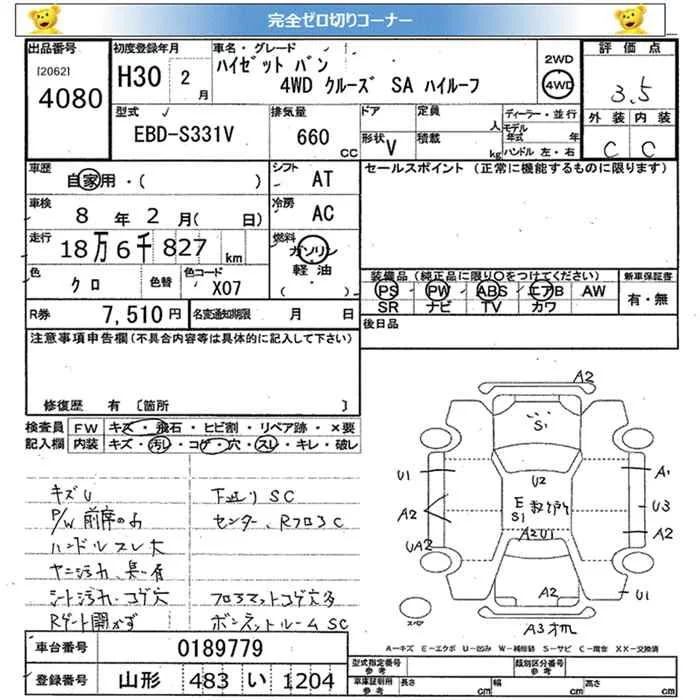 完全ゼロ切りコーナー
出品番号 初度登録年月 車名・グレード 評価点
[2062]
4080
H30 2月
ハイゼット バン
4WD クルーズ SA ハイルーフ
2WD
4WD
3.5
外装 内装
C C
型式 排気量 ドア 定員 ディーラー・並行
EBD-S331V 660 CC
人 モデル年式 年
形状 V 積載 kg ハンドル 左・右
車歴 自家用・( ) シフト AT
セールスポイント(正常に機能するものに限ります)
車検 8年2月( 日) 冷房 AC
走行 18万6千827km 燃料 ガソリン
軽油
( )
色 クロ 色替 色コード X07
装備品(純正品に限り○をつけてください) 新車保証書
PS PW ABS エアB AW
SR ナビ TV カワ
有・無
R券 7,510円 名変通知期限 月 日
後日品
注意事項申告欄(不具合内容等は具体的に記入して下さい)
修復歴 有 〔箇所 〕
検査員 FW キズ・飛石・ヒビ割・リペア跡・×要
記入欄 内装 キズ・汚レ・コゲ・穴・スレ・キレ・破レ
キズU 下廻り SC
P/W 前席のみ センター、Rフロア C
ハンドルスレ大
ヤニ汚れ、臭い有
シート汚れ・コゲ穴 フロアマットコゲ穴多
Rゲート開かず ボンネットルームSC
A2
S1
U1 U2 A1
A2 E S1 U3
UA2 A2U1 A2
A2 U1
スペア
A3
A-キズ E-エクボ U-凹み W-補修跡 S-サビ C-腐食 XX-交換済
車台番号 0189779
登録番号 山形 483 い 1204
型式指定番号 参考 類別区分番号 参考
車庫証明用 参考 長さ cm 幅 cm 高さ cm